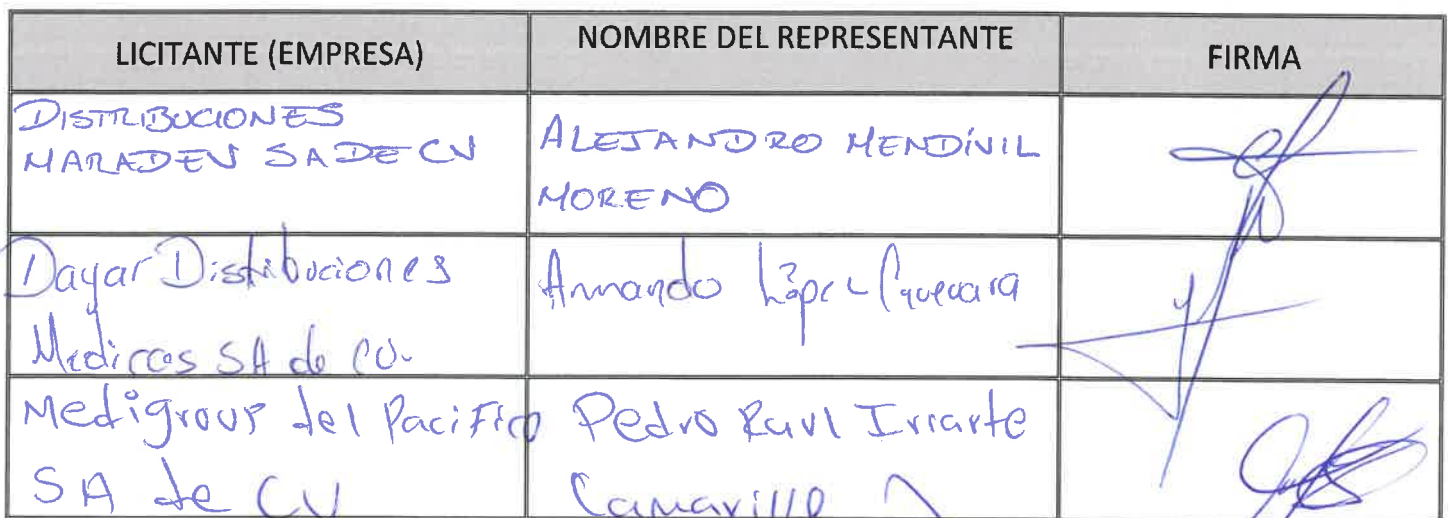 LICITANTE (EMPRESA)
NOMBRE DEL REPRESENTANTE
FIRMA
DISTRIBUCIONES
MARADEV SA DE CV
ALEJANDRO MENDÍVIL
MORENO
Dayar Distribuciones
Medicas SA de CV.
Armando López Guevara
Medigroup del Pacifico
SA de CV
Pedro Raul Iriarte
Camarillo